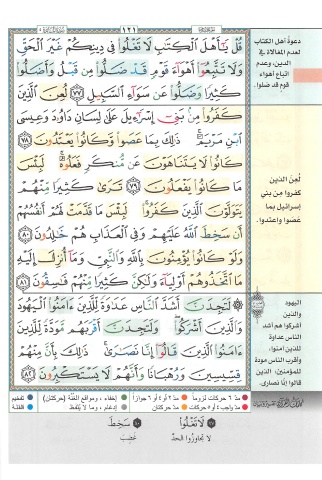 ١٢١
قُلْ يَٰٓأَهْلَ ٱلْكِتَٰبِ لَا تَغْلُوا۟ فِى دِينِكُمْ غَيْرَ ٱلْحَقِّ
وَلَا تَتَّبِعُوٓا۟ أَهْوَآءَ قَوْمٍ قَدْ ضَلُّوا۟ مِن قَبْلُ وَأَضَلُّوا۟
كَثِيرًا وَضَلُّوا۟ عَن سَوَآءِ ٱلسَّبِيلِ ﴿٧٧﴾ لُعِنَ ٱلَّذِينَ
كَفَرُوا۟ مِنۢ بَنِىٓ إِسْرَٰٓءِيلَ عَلَىٰ لِسَانِ دَاوُۥدَ وَعِيسَى
ٱبْنِ مَرْيَمَ ۚ ذَٰلِكَ بِمَا عَصَوا۟ وَّكَانُوا۟ يَعْتَدُونَ ﴿٧٨﴾
كَانُوا۟ لَا يَتَنَاهَوْنَ عَن مُّنكَرٍ فَعَلُوهُ ۚ لَبِئْسَ
مَا كَانُوا۟ يَفْعَلُونَ ﴿٧٩﴾ تَرَىٰ كَثِيرًا مِّنْهُمْ
يَتَوَلَّوْنَ ٱلَّذِينَ كَفَرُوا۟ ۚ لَبِئْسَ مَا قَدَّمَتْ لَهُمْ أَنفُسُهُمْ
أَن سَخِطَ ٱللَّهُ عَلَيْهِمْ وَفِى ٱلْعَذَابِ هُمْ خَٰلِدُونَ ﴿٨٠﴾
وَلَوْ كَانُوا۟ يُؤْمِنُونَ بِٱللَّهِ وَٱلنَّبِىِّ وَمَآ أُنزِلَ إِلَيْهِ
مَا ٱتَّخَذُوهُمْ أَوْلِيَآءَ وَلَٰكِنَّ كَثِيرًا مِّنْهُمْ فَٰسِقُونَ ﴿٨١﴾
لَتَجِدَنَّ أَشَدَّ ٱلنَّاسِ عَدَٰوَةً لِّلَّذِينَ ءَامَنُوا۟ ٱلْيَهُودَ
وَٱلَّذِينَ أَشْرَكُوا۟ ۖ وَلَتَجِدَنَّ أَقْرَبَهُم مَّوَدَّةً لِّلَّذِينَ
ءَامَنُوا۟ ٱلَّذِينَ قَالُوٓا۟ إِنَّا نَصَٰرَىٰ ۚ ذَٰلِكَ بِأَنَّ مِنْهُمْ
قِسِّيسِينَ وَرُهْبَانًا وَأَنَّهُمْ لَا يَسْتَكْبِرُونَ ﴿٨٢﴾
دعوة أهل الكتاب
لعدم المغالاة في
الدين، وعدم
اتباع أهواء
قوم قد ضلوا.
لُعِنَ الذين
كفروا من بني
إسرائيل بما
عصوا واعتدوا.
اليهود
والذين
أشركوا هم أشد
الناس عداوة
للذين آمنوا،
وأقرب الناس مودة
للمؤمنين، الذين
قالوا إنا نصارى.
مد ٦ حركات لزوماً
مد ٢ أو ٤ أو ٦ جوازاً
إخفاء، ومواقع الغُنَّة (حركتان)
تفخيم
مد واجب ٤ أو ٥ حركات
مد حركتان
إدغام، وما لا يُلفظ
قلقلة
لَا تَغْلُوا۟
لا تجاوزوا الحدَّ
سَخِطَ
غضِبَ